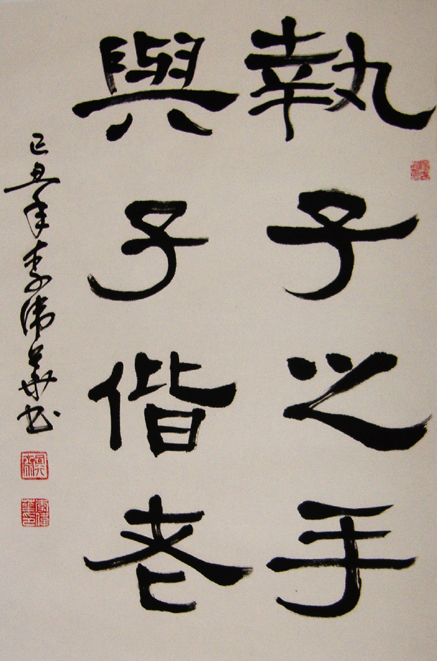 執子之手
與子偕老
己丑年李伟华书